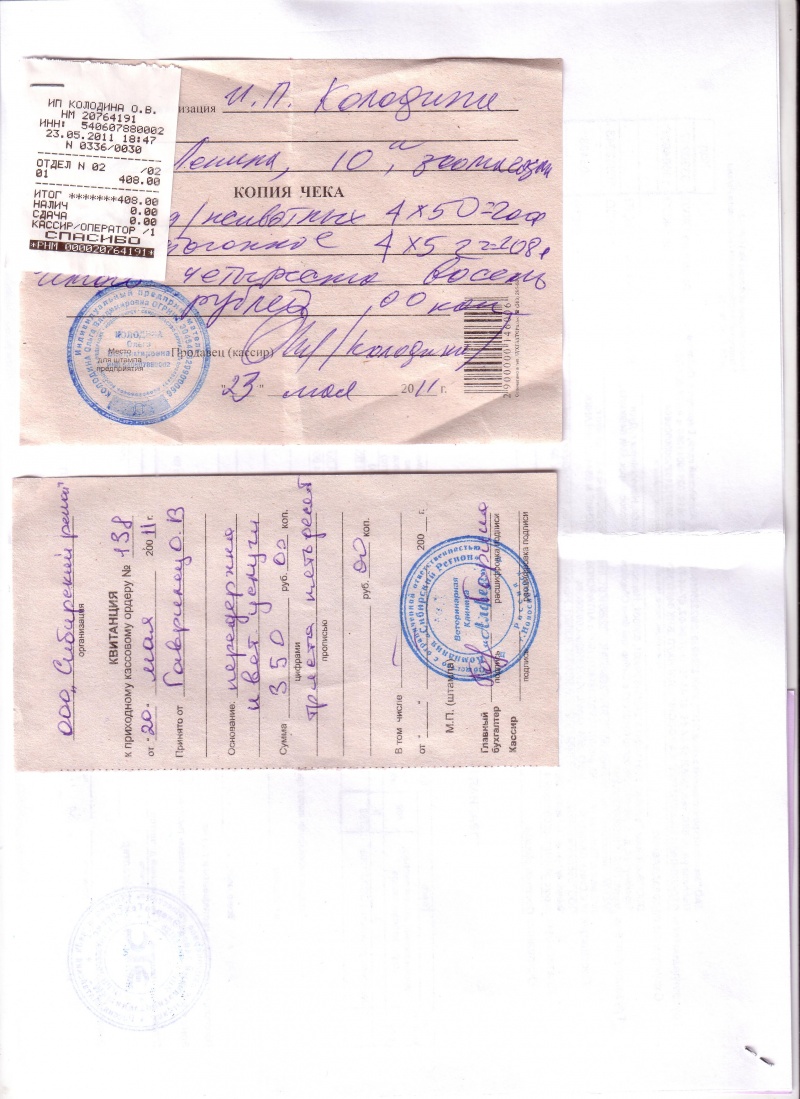 ИП КОЛОДИНА О.В.
НМ 20764191
ИНН: 540607880002
23.05.2011 18:47
N 0336/0030
ОТДЕЛ N 02 /02
01 408.00
ИТОГ *******408.00
НАЛИЧ 0.00
СДАЧА 0.00
КАССИР/ОПЕРАТОР /1
СПАСИБО
*РНМ 000020764191*
изация И.П. Колодина
Ленина, 10
КОПИЯ ЧЕКА
/животных 4х50=200
4х52=208
четыреста восемь
рублей 00 коп
Место для штампа предприятия
Продавец (кассир) /Колодина/
"23" мая 2011 г.
ООО "Сибирский регион"
организация
КВИТАНЦИЯ
К приходному кассовому ордеру № 138
от "20" мая 2011 г.
Принято от Гавринец О.В
Основание: передержка
и вет услуги
Сумма 350 руб. 00 коп.
цифрами
триста пятьдесят
прописью
руб. 00 коп.
В том числе
от " " 200 г.
М.П. (штампа)
Главный бухгалтер
подпись расшифровка подписи
Кассир
подпись расшифровка подписи
Компания «Сибирский Регион»
Ветеринарная
Клиника